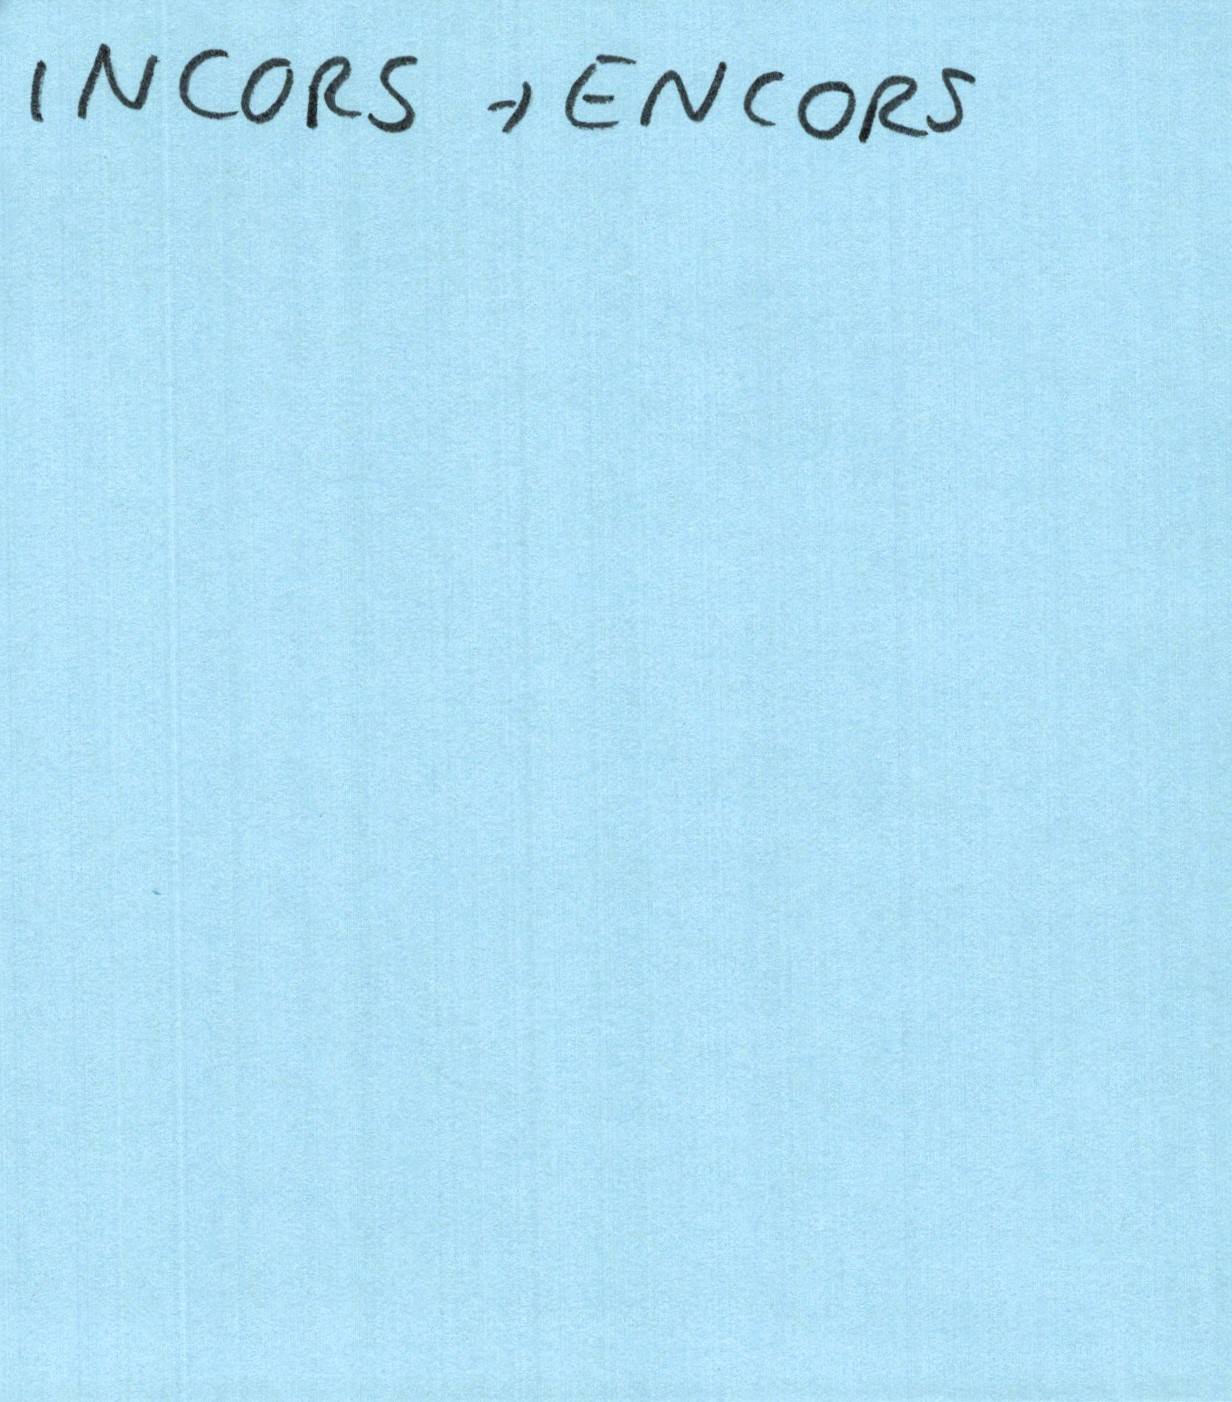 INCORS → ENCORS